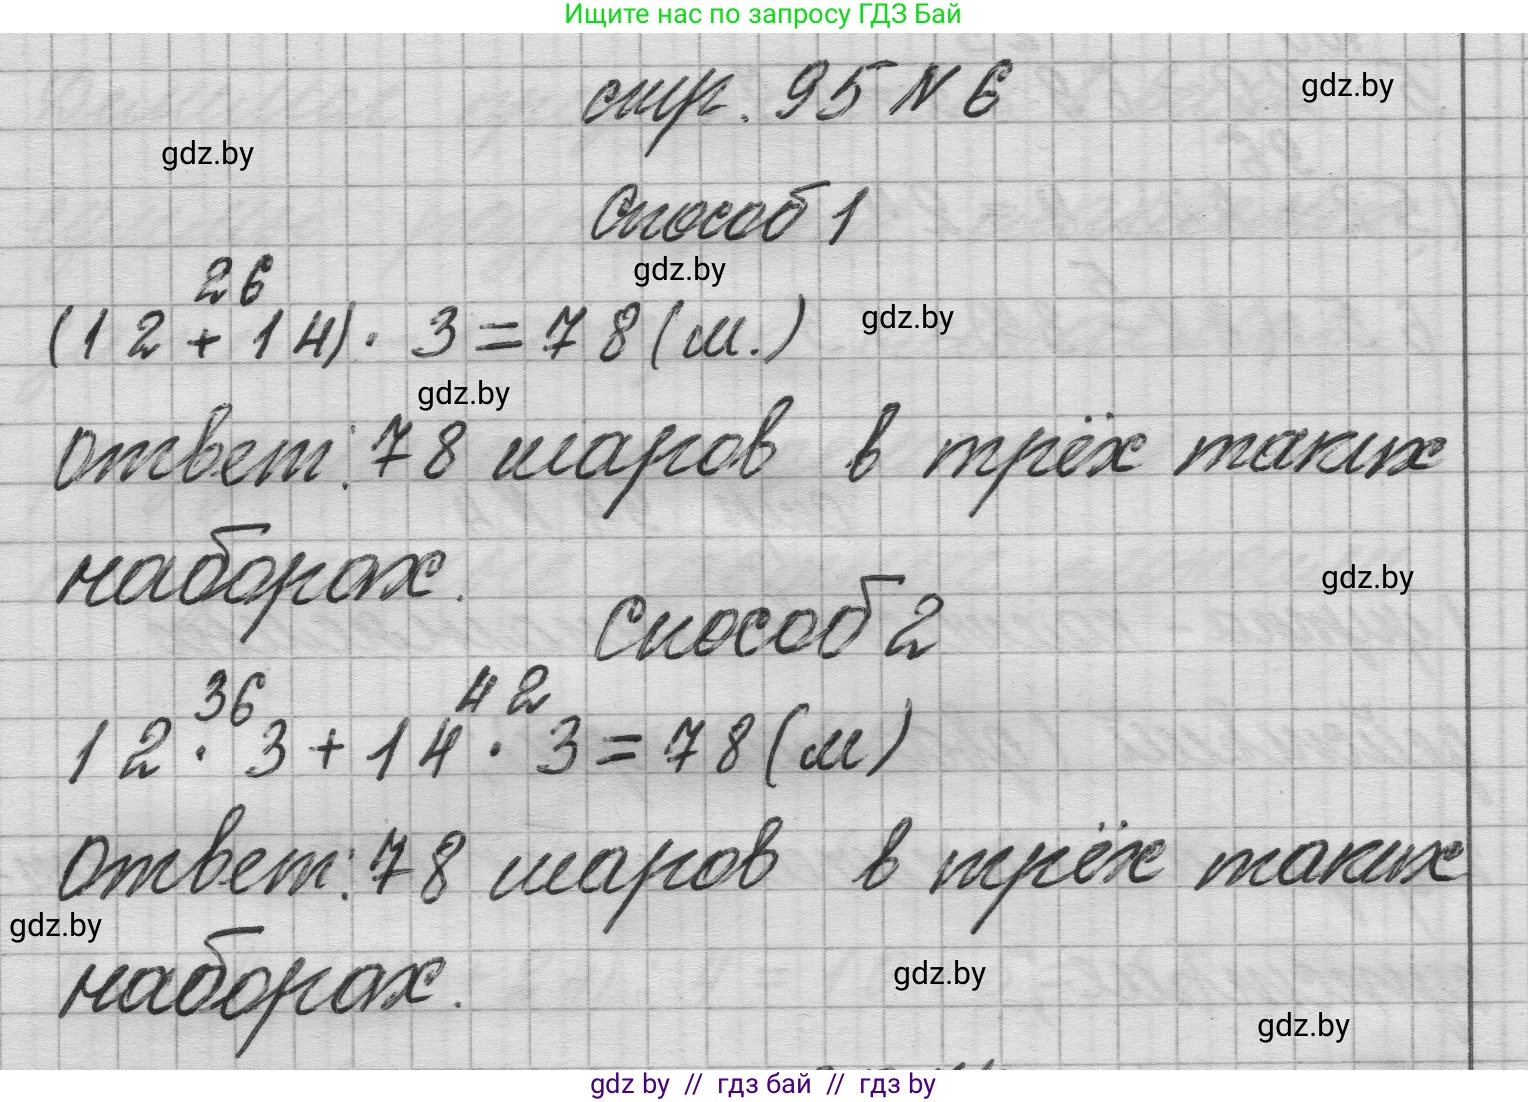 Ищите нас по запросу ГДЗ Бай
стр. 95 N 6
gdz.by
gdz.by
Способ 1
gdz.by
26
(12 + 14) · 3 = 78 (ш.)
gdz.by
gdz.by
ответ: 78 шаров в трёх таких
наборах.
gdz.by
Способ 2
36 42
12 · 3 + 14 · 3 = 78 (ш)
ответ: 78 шаров в трёх таких
gdz.by
наборах.
gdz.by
gdz.by
gdz by // гдз бай // гдз by